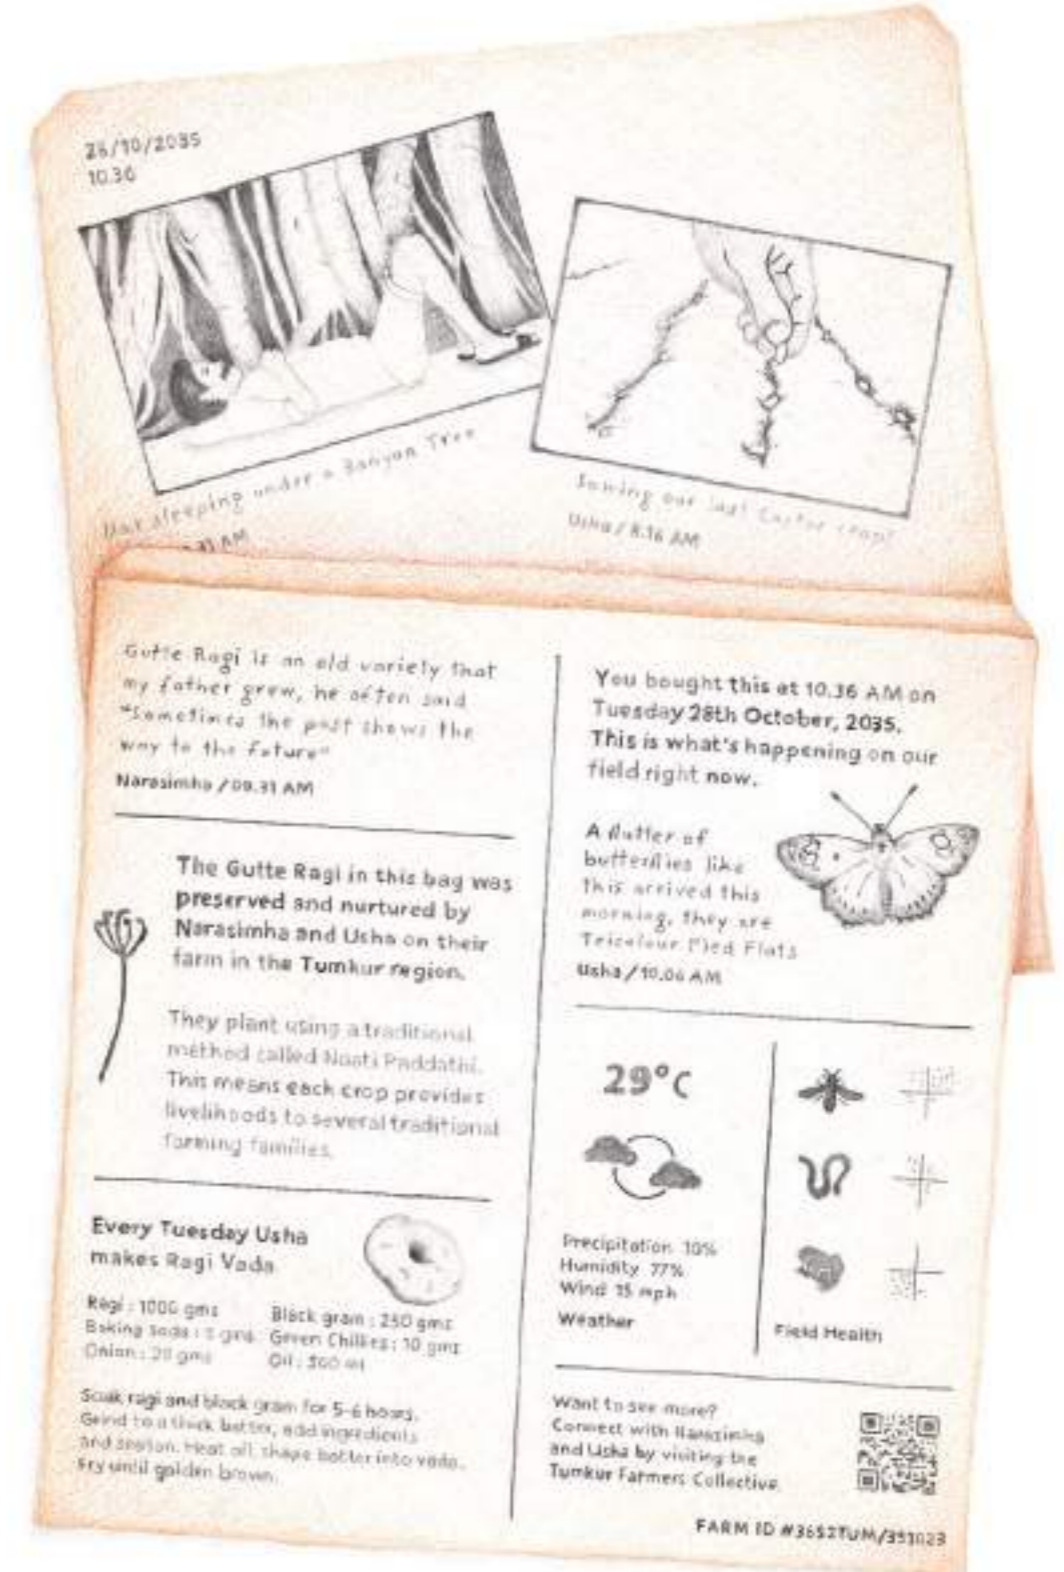 28/10/2035
10.36
sleeping under a Banyan Tree
31 AM
Sowing our last Castor crop!
Usha / 8.36 AM
Gutte Ragi is an old variety that
my father grew, he often said
"Sometimes the past shows the
way to the future"
Narasimha / 09.31 AM
The Gutte Ragi in this bag was
preserved and nurtured by
Narasimha and Usha on their
farm in the Tumkur region.
They plant using a traditional
method called Naati Paddathi.
This means each crop provides
livelihoods to several traditional
farming families.
Every Tuesday Usha
makes Ragi Vada
Ragi : 1000 gms
Baking Soda : 5 gms
Onion : 20 gms
Black gram : 250 gms
Green Chillies : 10 gms
Oil : 500 ml
Soak ragi and black gram for 5-6 hours.
Grind to a thick batter, add ingredients
and season. Heat oil, shape batter into vada,
fry until golden brown.
You bought this at 10.36 AM on
Tuesday 28th October, 2035.
This is what's happening on our
field right now.
A flutter of
butterflies like
this arrived this
morning, they are
Tricolour Pied Flats
Usha / 10.06 AM
29°C
Precipitation 10%
Humidity 77%
Wind 15 mph
Weather
Field Health
Want to see more?
Connect with Narasimha
and Usha by visiting the
Tumkur Farmers Collective
FARM ID #3652TUM/351023